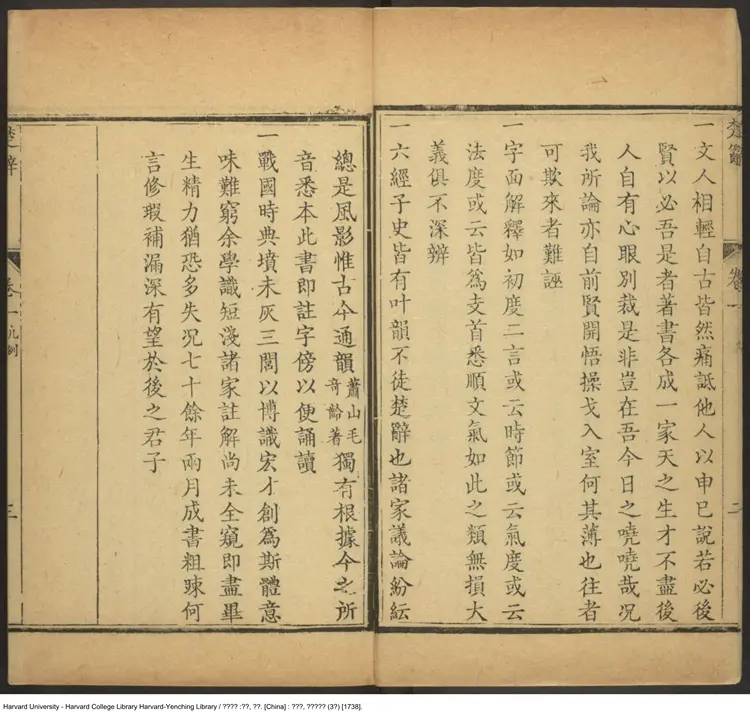 一文人相輕自古皆然痛詆他人以申己說若必後
賢以必吾是者著書各成一家天之生才不盡後
人自有心眼別裁是非豈在吾今日之嘵嘵哉况
我所論亦自前賢開悟操戈入室何其薄也往者
可欺來者難誣
一字面解釋如初度二言或云時節或云氣度或云
法度或云皆爲支首悉順文氣如此之類無損大
義俱不深辨
一六經子史皆有叶韻不徒楚辭也諸家議論紛紜
楚辭
卷一 凡例
三
二
總是風影惟古今通韻蕭山毛奇齡著獨有根據今之所
音悉本此書即註字傍以便誦讀
一戰國時典墳未灰三閭以博識宏才創爲斯體意
味難窮余學識短淺諸家註解尚未全窺即盡畢
生精力猶恐多失况七十餘年兩月成書粗疎何
言修瑕補漏深有望於後之君子
Harvard University - Harvard College Library Harvard-Yenching Library / ???? :??, ??. [China] : ???, ????? (3?) [1738].